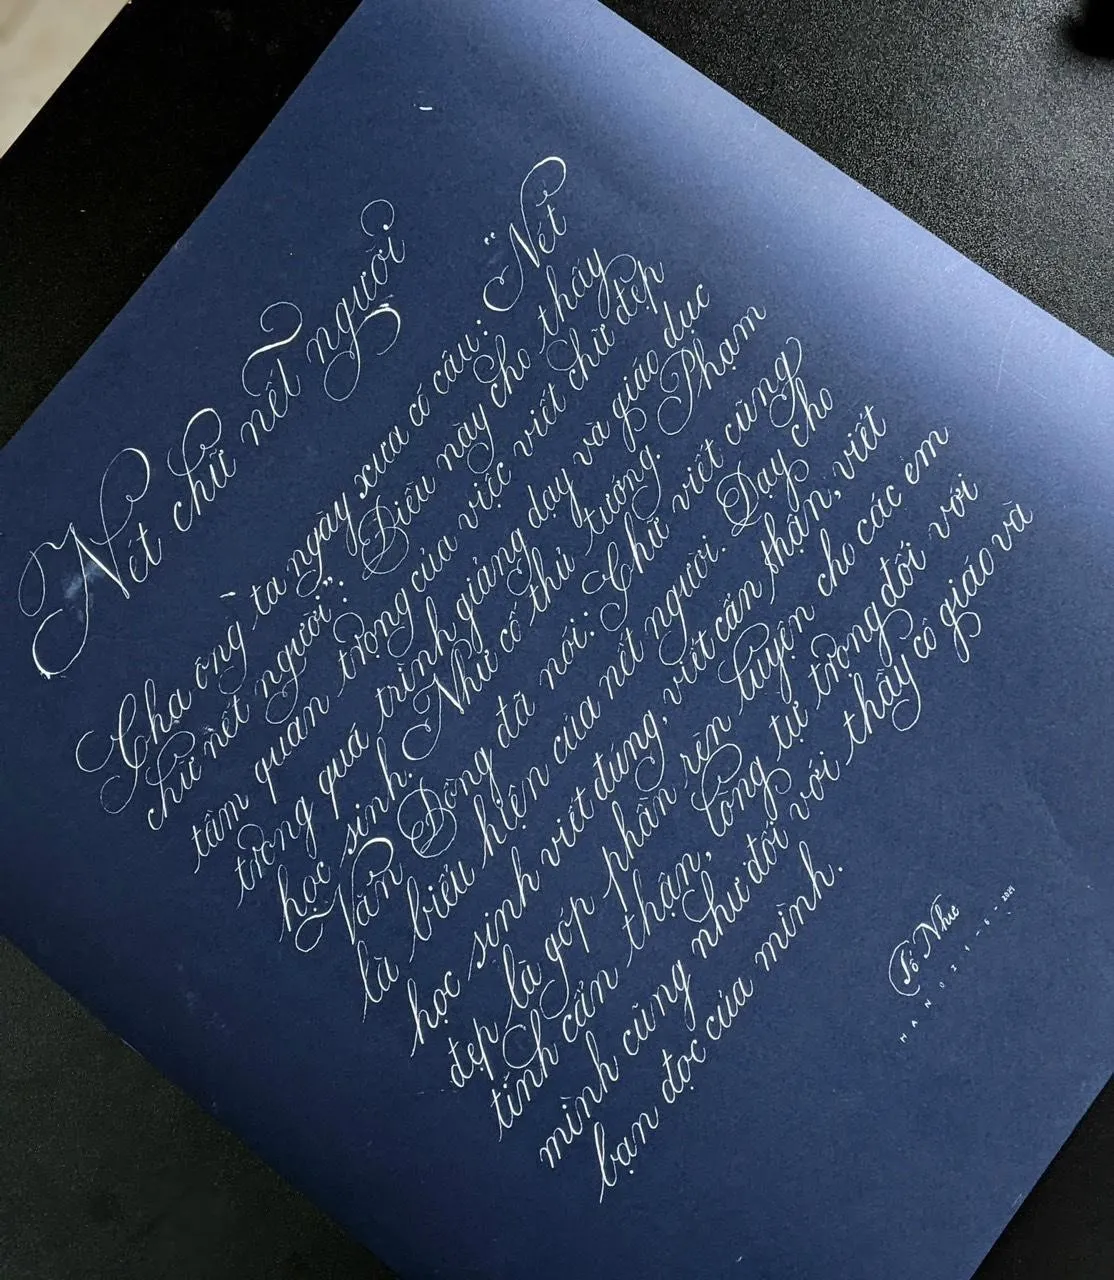 Nét chữ nết người
Cha ông ta ngày xưa có câu: "Nét
chữ nết người". Điều này cho thấy
tầm quan trọng của việc viết chữ đẹp
trong quá trình giảng dạy và giáo dục
học sinh. Như cố thủ tướng. Phạm
Văn Đồng đã nói: Chữ viết cũng
là biểu hiện của nết người. Dạy cho
học sinh viết đúng, viết cẩn thận, viết
đẹp là góp phần rèn luyện cho các em
tính cẩn thận, lòng tự trọng đối với
mình cũng như đối với thầy cô giáo và
bạn đọc của mình.
Tố Như
HANOI 1 - 6 - 2021